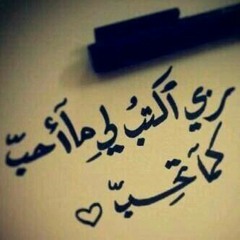 ربي أكتبُ لي مِآ أحبّ
كمآ تحِبّ